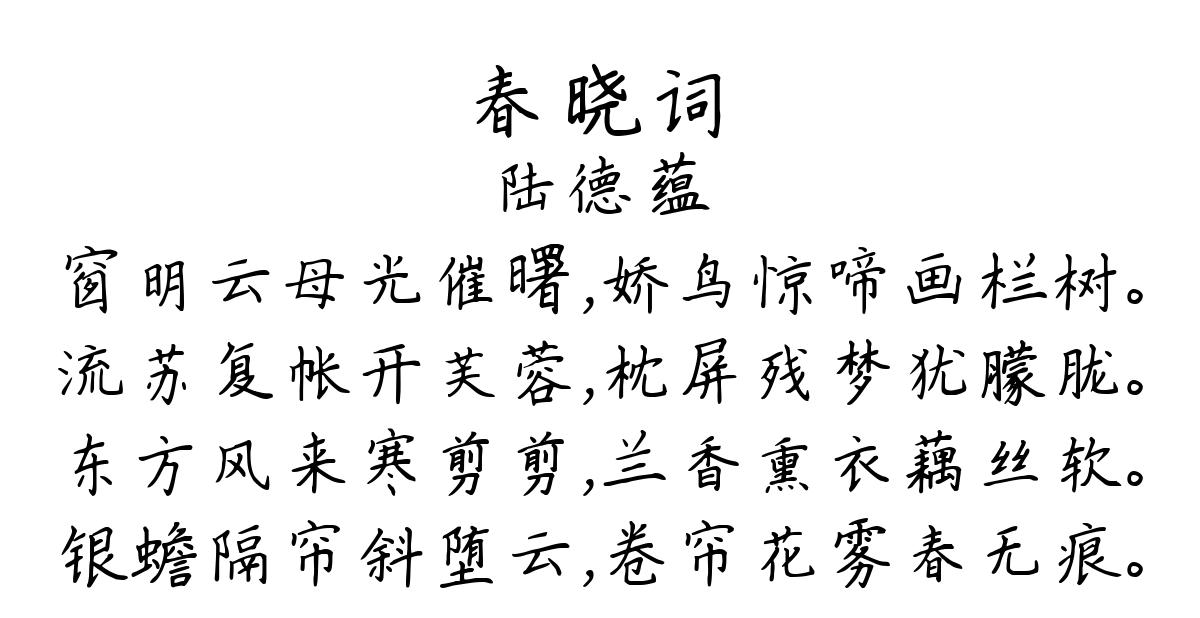 春晓词
陆德蕴
窗明云母光催曙,娇鸟惊啼画栏树。
流苏复帐开芙蓉,枕屏残梦犹朦胧。
东方风来寒剪剪,兰香熏衣藕丝软。
银蟾隔帘斜堕云,卷帘花雾春无痕。